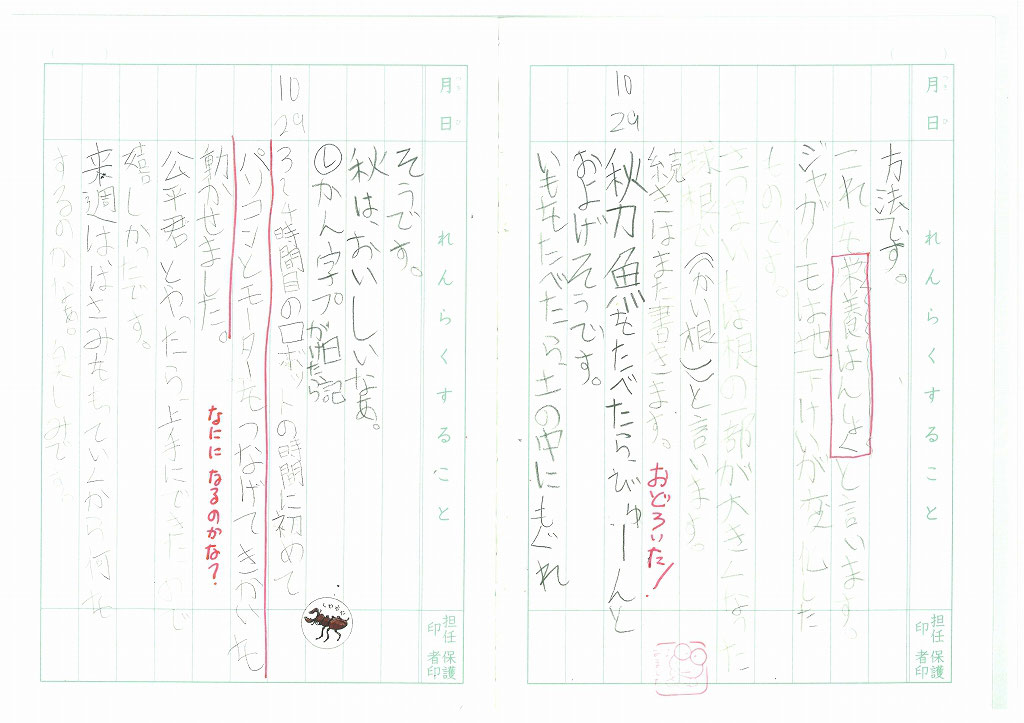 月日
れんらくすること
担任印
保護者印
方法です。
これを栄養はんしょくと言います。
ジャガイモは地下けいが変化した
ものです。
さつまいもは根の一部が大きくなった
球根で(かい根)と言います。
続きはまた書きます。
おどろいた!
10 29
秋刀魚をたべたら、びゅーんと
およげそうです。
いもをたべたら、土の中にもぐれ
月日
れんらくすること
担任印
保護者印
そうです。
秋は、おいしいなあ。
かん字プ 日記
がけたら。
10 29
3、4時間目のロボットの時間に初めて
パソコンとモーターをつなげてきかいを
動かせました。
なにに なるのかな?
公平君とやったら、上手にできたので
嬉しかったです。
来週ははさみをもっていくから何を
するのかなあ。楽しみです。